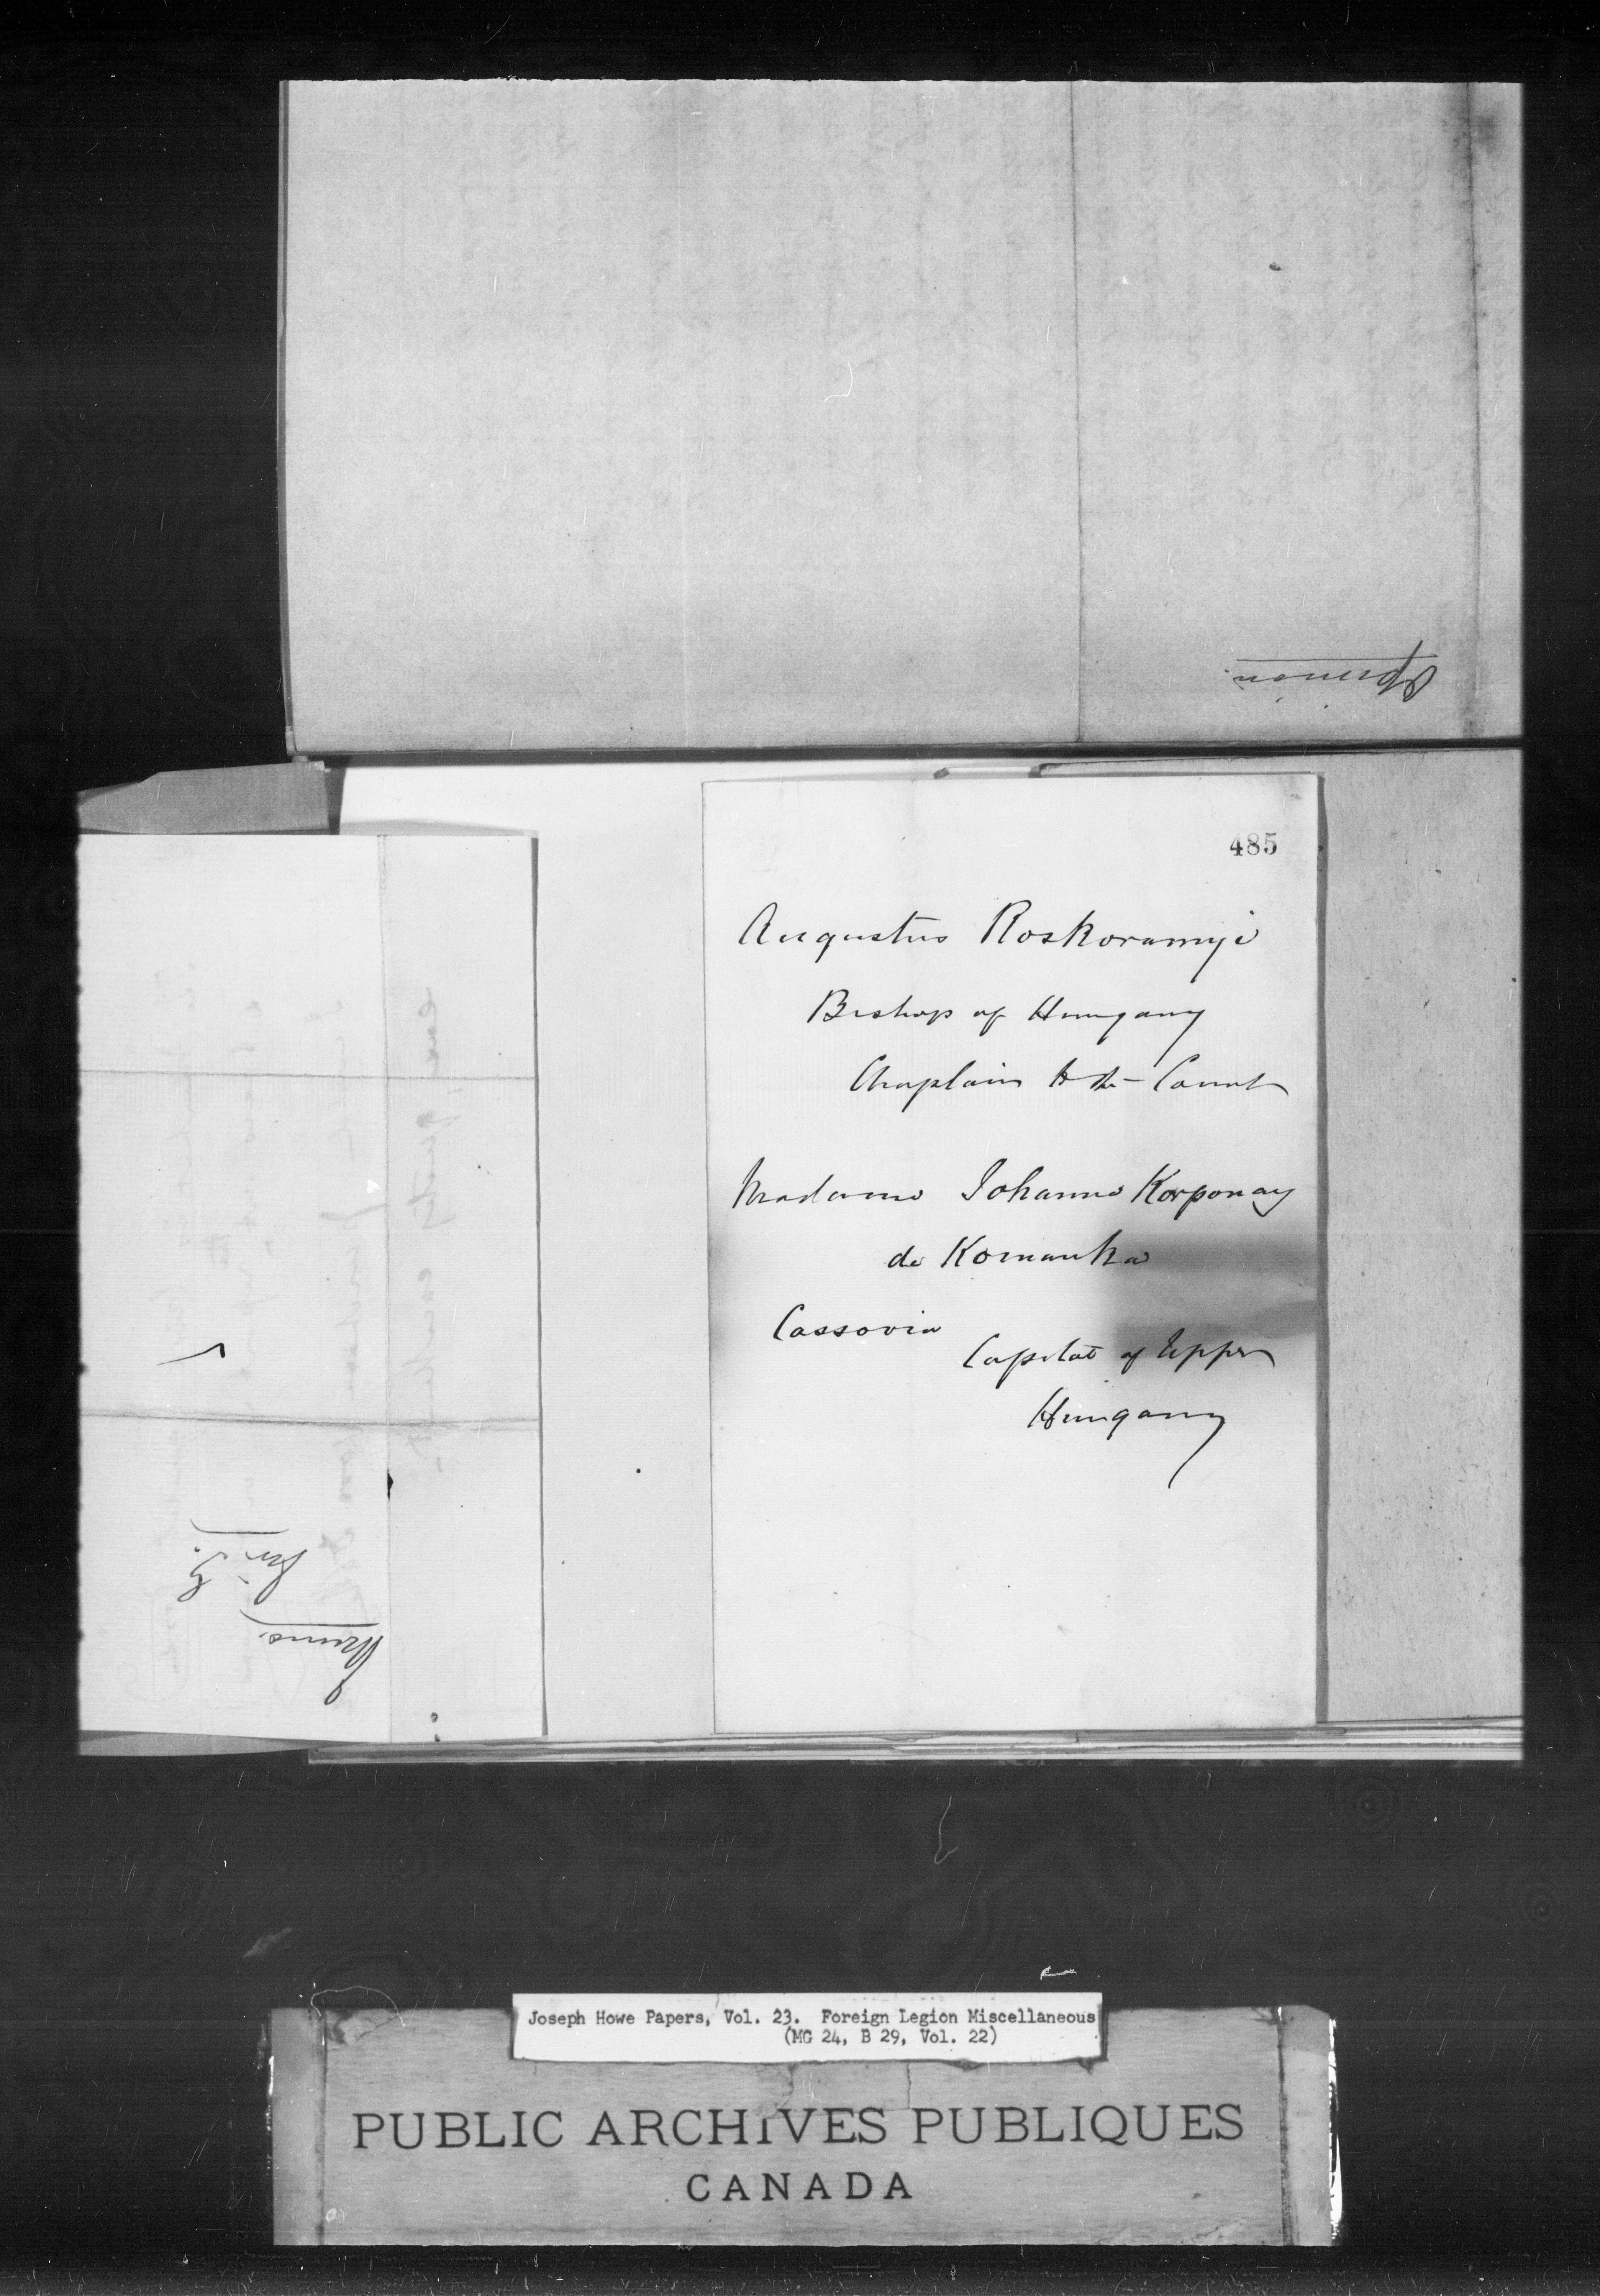 Opinion
485
Augustus Roskoramyi
Bishop of Hungary
Chaplain to the Court
Madame Johanna Korponay
de Komanka
Cassovia
Capital of Upper
Hungary
Joseph Howe Papers, Vol. 23. Foreign Legion Miscellaneous
(MG 24, B 29, Vol. 22)
PUBLIC ARCHIVES PUBLIQUES
CANADA